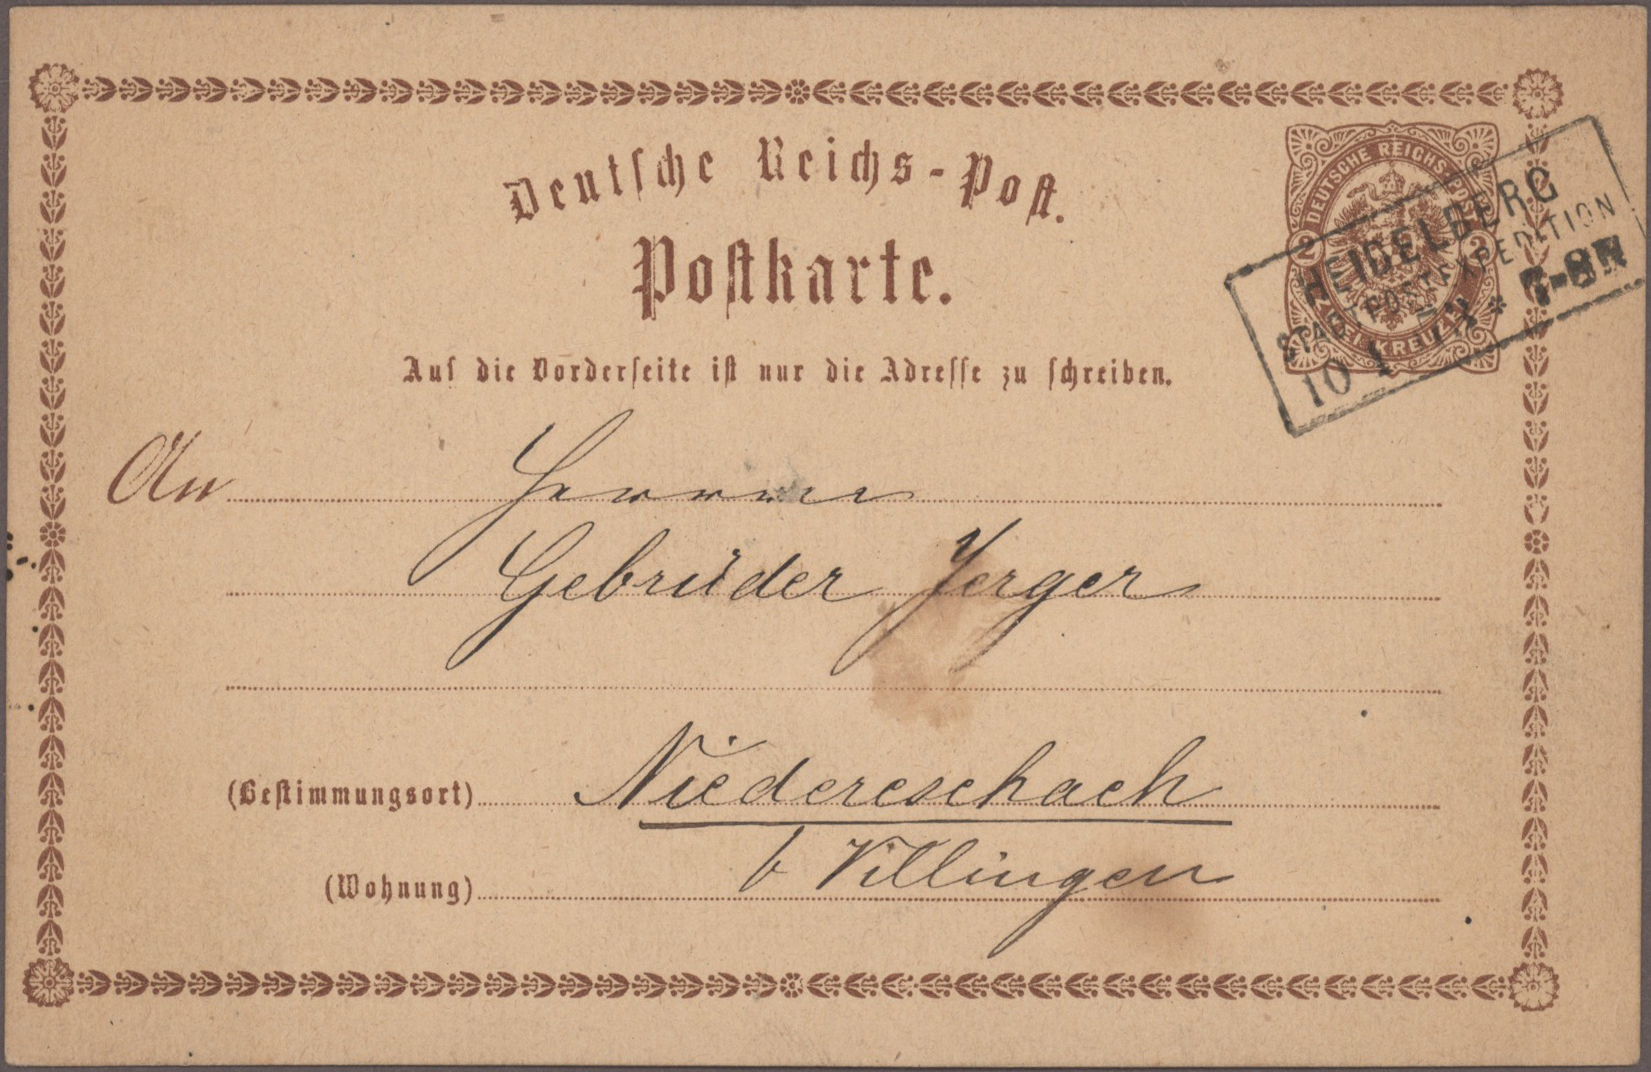 Deutsche Reichs-Post.
Postkarte.
Auf die Vorderseite ist nur die Adresse zu schreiben.
DEUTSCHE REICHS-POST
2 2
ZWEI KREUZER
HEIDELBERG
STADTPOSTEXPEDITION
10 1
An Herren
Gebrüder Jerger
(Bestimmungsort) Niedereschach
(Wohnung) b Villingen